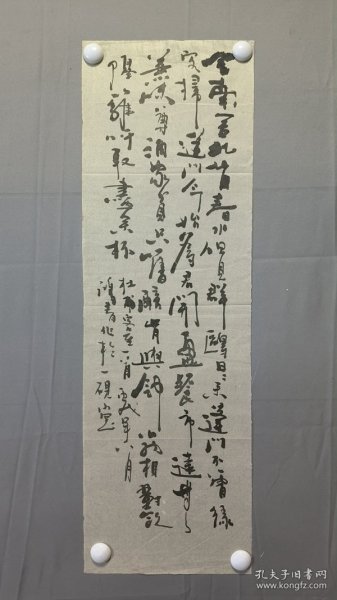 舍南舍北皆春水但见群鸥日日来蓬门不曾缘
客扫蓬门今始为君开盘飧市远
无兼味尊酒家贫只旧醅肯与邻翁相对饮
隔篱呼取尽余杯
杜甫客至一首 年八月
砚
孔夫子旧书网